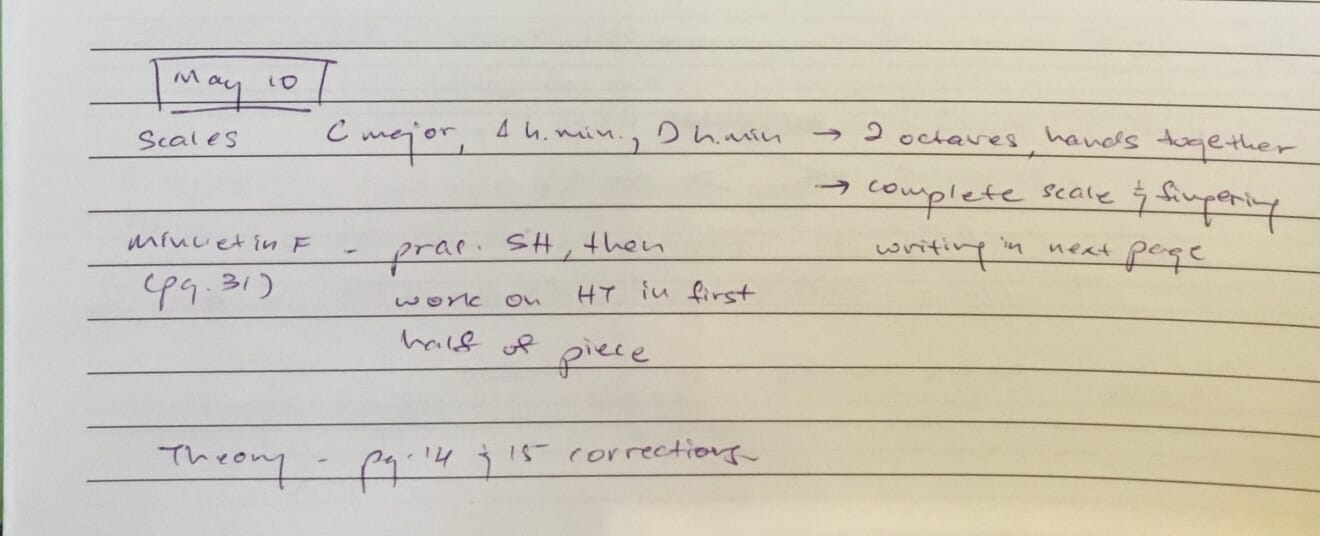 May 10
Scales C major, A h.min., D h.min → 2 octaves, hands together
→ complete scale & fingering
Minuet in F - prac. SH, then writing in next page
(pg. 31) work on HT in first
half of piece
Theory - pg. 14 & 15 corrections